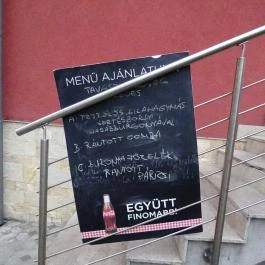 MENÜ AJÁNLATU
A: TEJFÖLÖS LILAHAGYMÁS
SERTÉSBORDA
HASÁBBURGONYÁVAL
B. RÁNTOTT GOMBA
C. BURGONYAFŐZELÉK
RÁNTOTT
PÁRIZSI
EGYÜTT
FINOMABB!